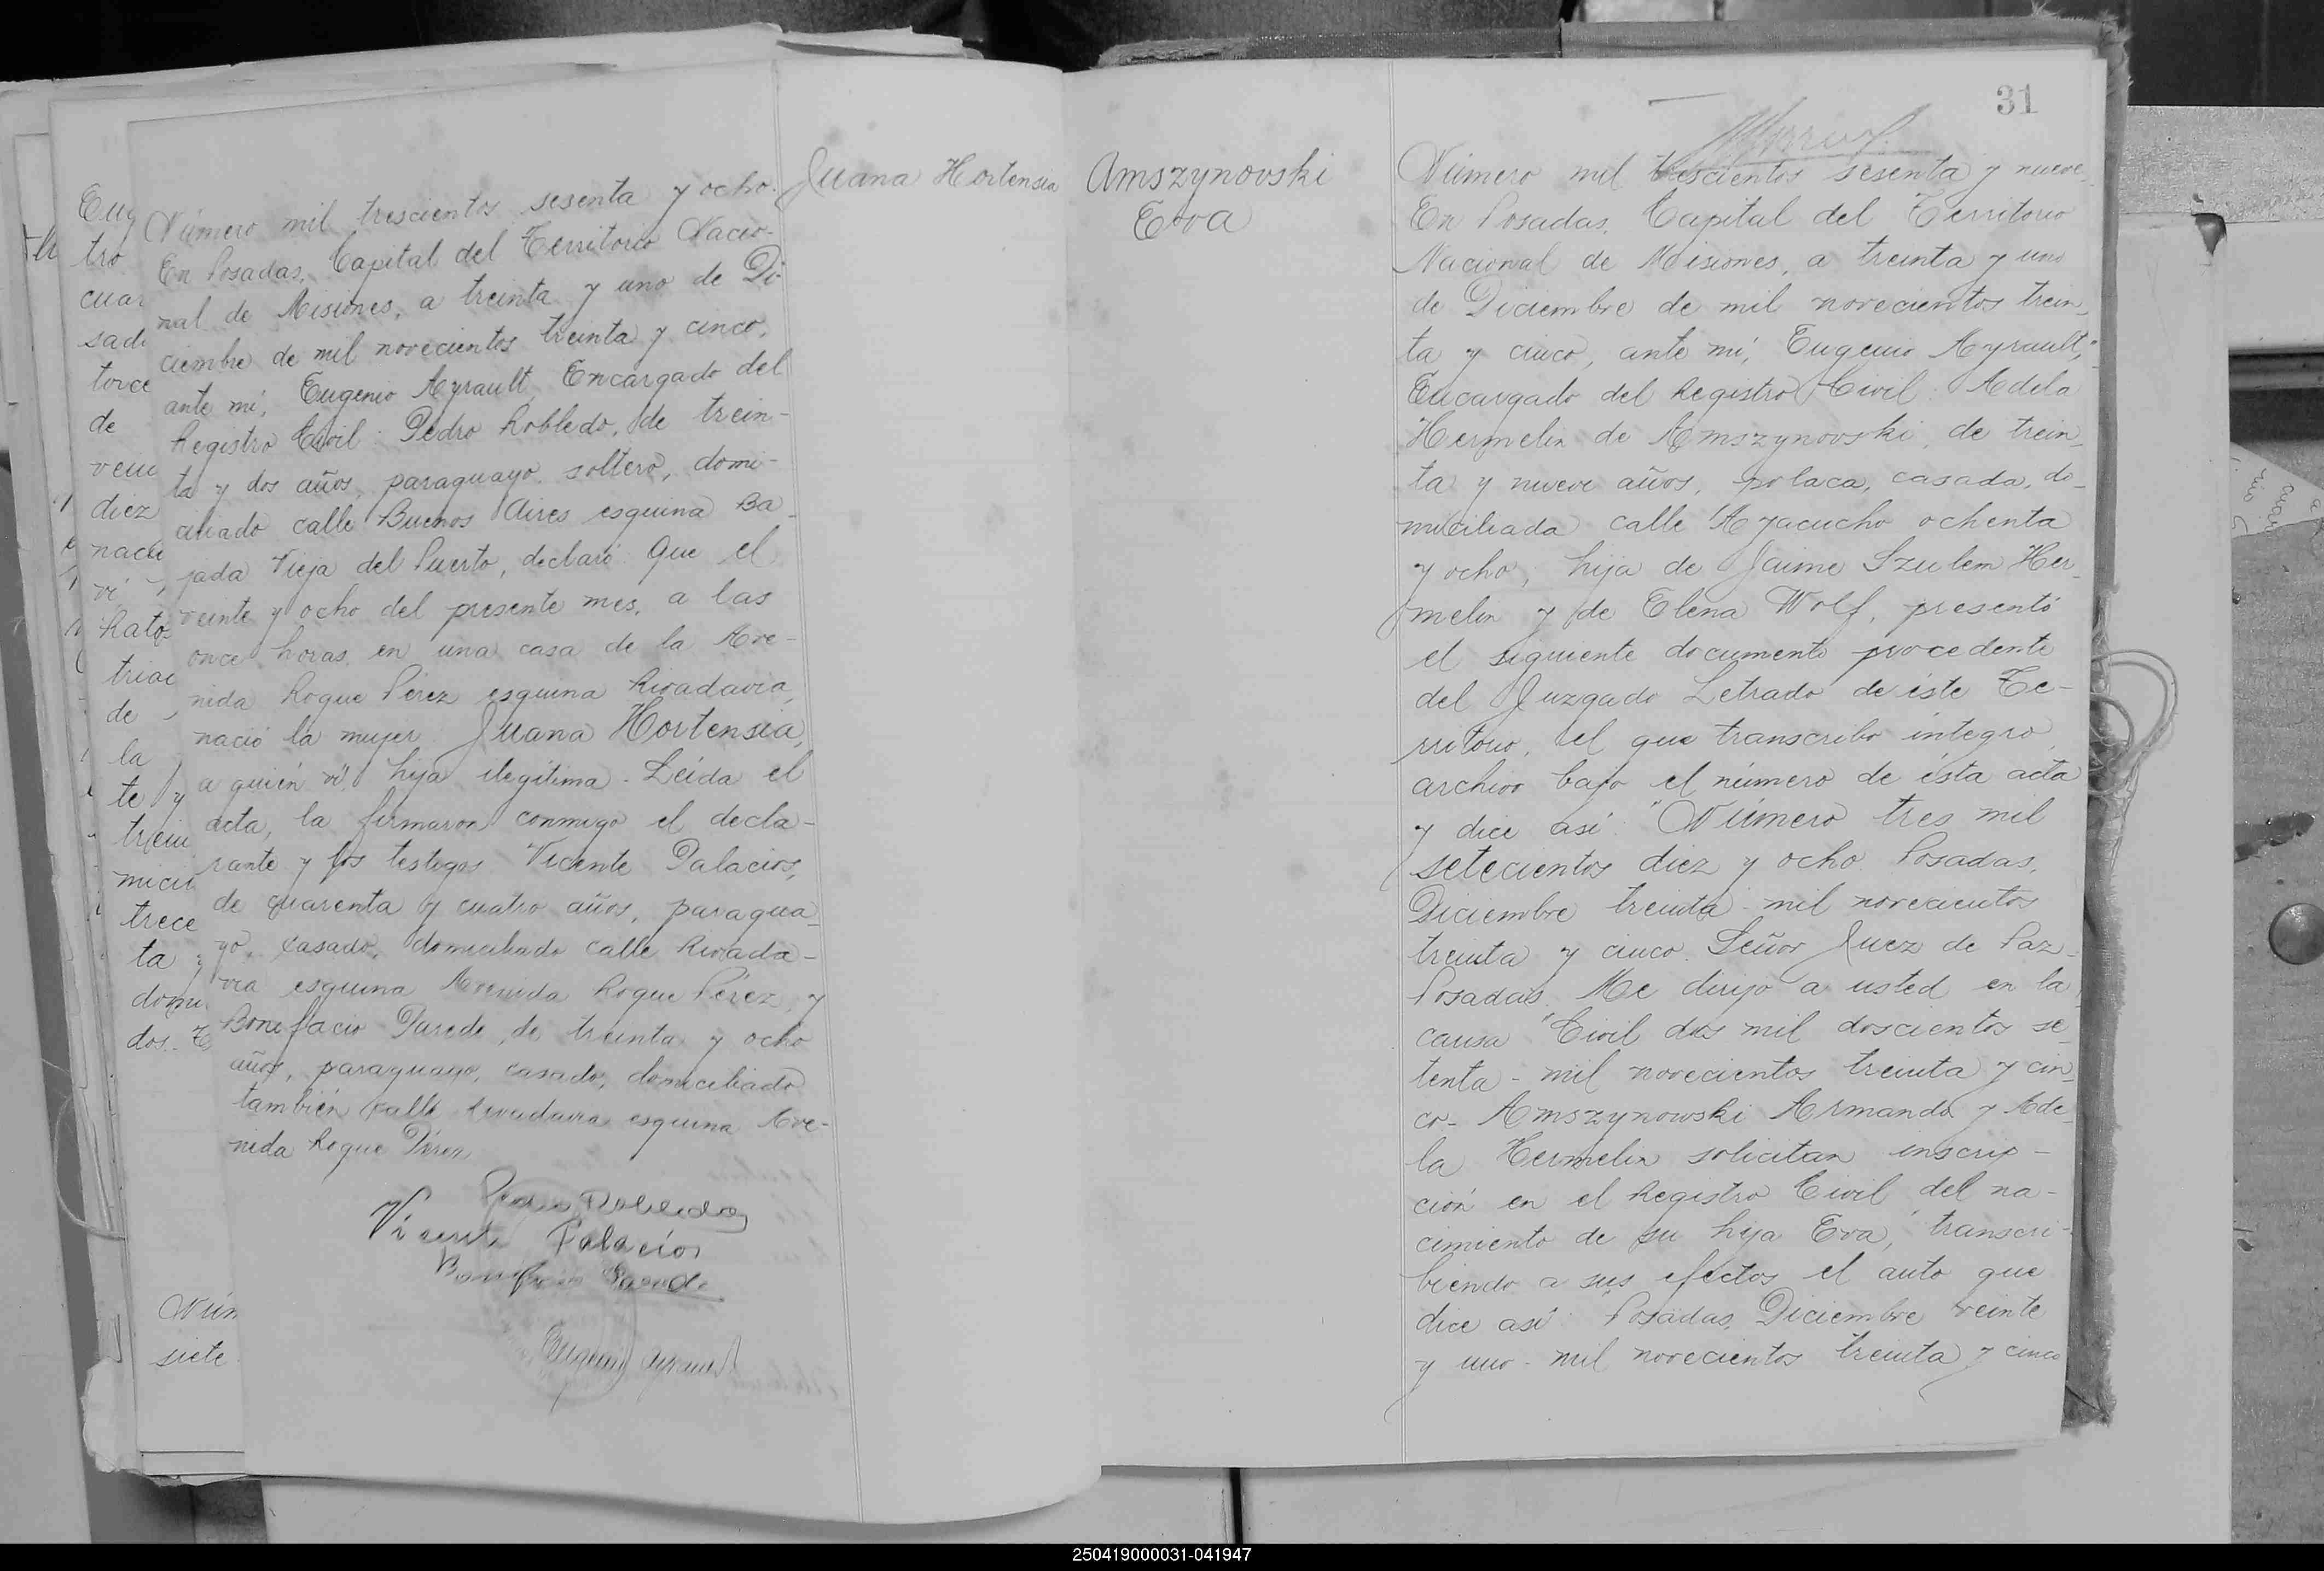 Juana Hortensia
Número mil trescientos sesenta y ocho.
En Posadas, Capital del Territorio Nacio-
nal de Misiones, a treinta y uno de Di-
ciembre de mil novecientos treinta y cinco,
ante mí, Eugenio Ayrault, Encargado del
Registro Civil: Pedro Robledo, de trein-
ta y dos años, paraguayo, soltero, domi-
ciliado calle Buenos Aires esquina Ba-
jada Vieja del Puerto, declaró: Que el
veinte y ocho del presente mes, a las
once horas, en una casa de la Ave-
nida Roque Pérez esquina Rivadavia,
nació la mujer Juana Hortensia,
a quién ví, hija ilegítima. Leída el
acta, la firmaron conmigo el decla-
rante y los testigos Vicente Palacios,
de cuarenta y cuatro años, paragua-
yo, casado, domiciliado calle Rivada-
via esquina Avenida Roque Pérez, y
Bonifacio Parede, de treinta y ocho
años, paraguayo, casado, domiciliado
también calle Rivadavia esquina Ave-
nida Roque Pérez
Pedro Robledo
Vicente Palacios
Bonifacio Parede
Eugenio Ayrault
Eug
tro
cuar
sad
torce
de
diez
naci
ví
Rato
de
la
te y
trein
mici
trece
ta y
domi
dos.
Núm
siete
31
Amszynovski
Eva
Número mil trescientos sesenta y nueve.
En Posadas, Capital del Territorio
Nacional de Misiones, a treinta y uno
de Diciembre de mil novecientos trein-
ta y cinco, ante mí, Eugenio Ayrault,
Encargado del Registro Civil: Adela
Hermelin de Amszynovski, de trein-
ta y nueve años, polaca, casada, do-
miciliada calle Ayacucho ochenta
y ocho, hija de Jaime Szulem Her-
melin y de Elena Wolf, presentó
el siguiente documento procedente
del Juzgado Letrado de éste Te-
rritorio, el que transcribo íntegro,
archivo bajo el número de ésta acta
y dice así: "Número tres mil
setecientos diez y ocho. Posadas,
Diciembre treinta - mil novecientos
treinta y cinco. Señor Juez de Paz -
Posadas. Me dirijo a usted en la
causa "Civil dos mil doscientos se-
tenta - mil novecientos treinta y cin-
co - Amszynowski Armando y Ade-
la Hermelin solicitan inscrip-
ción en el Registro Civil del na-
cimiento de su hija Eva, transcri-
biendo a sus efectos el auto que
dice así: Posadas, Diciembre veinte
y uno - mil novecientos treinta y cinco
250419000031-041947